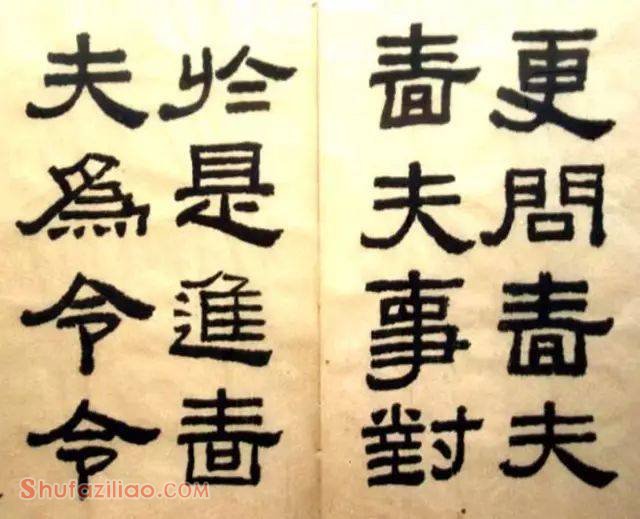 更問嗇夫
嗇夫事對
於是進嗇
夫爲令令
Shufaziliao.com